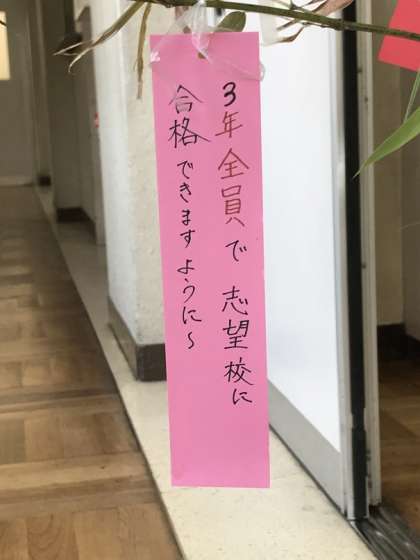 3年全員で志望校に
合格できますように～